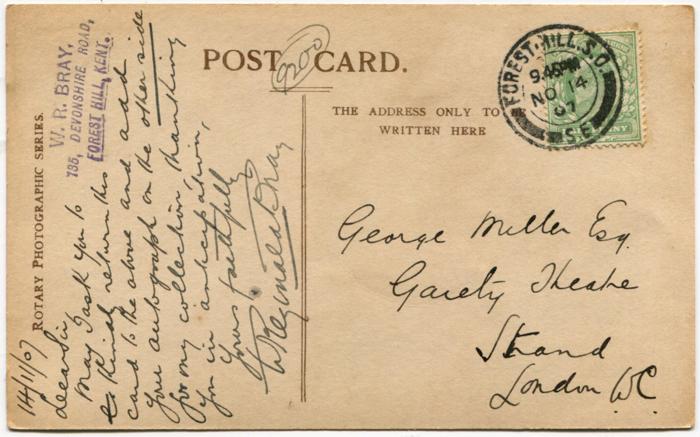 POST CARD.
9200
THE ADDRESS ONLY TO
WRITTEN HERE
ROTARY PHOTOGRAPHIC SERIES.
W. R. BRAY,
135, DEVONSHIRE ROAD,
FOREST HILL, KENT.
14/11/07
Dear Sir,
May I ask you to
kindly return this
card to the above and add
your autograph on the other side
for my collection, thanking
you in anticipation,
Yours faithfully
W Reginald Bray
FOREST.HILL.S.O
9.45PM
NO 14
07
S.E
George Miller Esq.
Gaiety Theatre
Strand
London W.C.